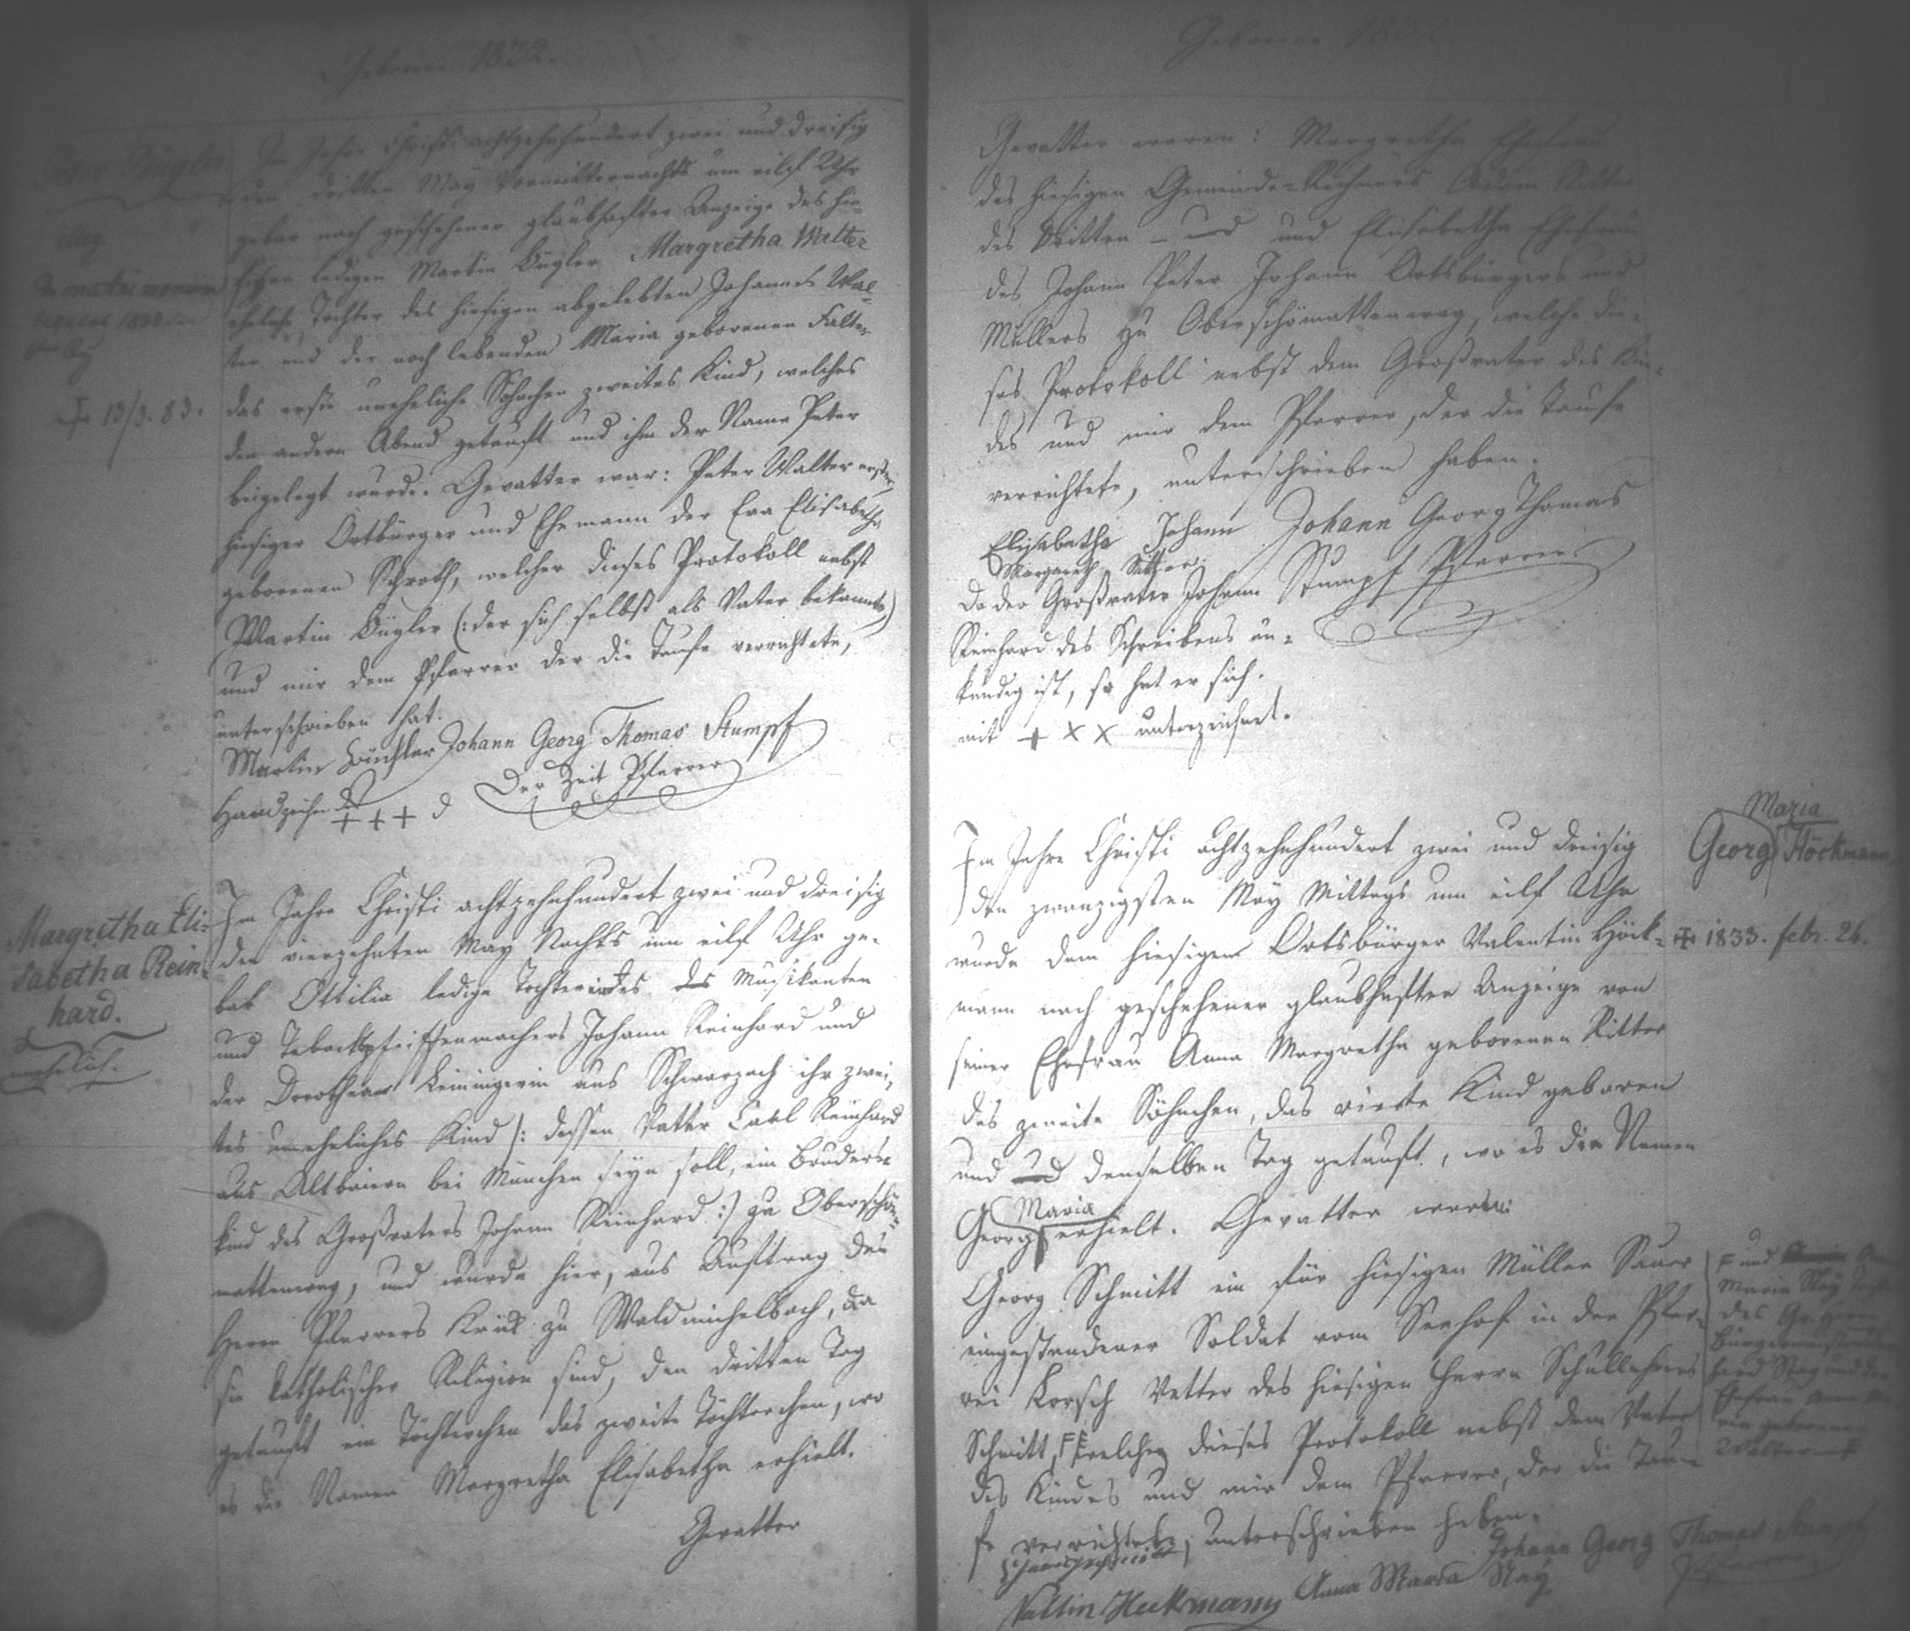 Geborene 1832.
Im Jahre Christi achtzehnhundert zwei und dreisig
den dritten May Vormitternachts um eilf Uhr
gebar nach geschehener glaubhafter Anzeige des hie-
sigen ledigen Martin Bügler Margretha Walter
eheliche Tochter des hiesigen abgelebten Johannes Wal-
ter und der noch lebenden Maria geborenen Falter
das erste uneheliche Söhnchen zweites Kind, welches
den andern Abend getauft und ihm der Name Peter
beigelegt wurde. Gevatter war: Peter Walter erster,
hiesiger Ortbürger und Ehemann der Eva Elisabetha
geborenen Schroth, welcher dieses Protokoll nebst
Martin Bügler (: der sich selbst als Vater bekannte)
und mir dem Pfarrer der die Taufe verrichtete,
unterschrieben hat.
Martin Johann Georg Thomas Stumpf
Handzeichen + + + Der Zeit Pfarrer
Bügler
In matrimonium
1833
+ 13/3. 83.
Margretha Eli-
sabetha Rein-
hard.
unehelich.
Im Jahre Christi achtzehnhundert zwei und dreisig
den vierzehnten May Nachts um eilf Uhr ge-
bar Ottilia ledige Tochter des Musikanten
und Tabackspfeiffenmachers Johann Reinhard und
der Dorothea Leiningerin aus Schwarzach ihr zwei-
tes uneheliches Kind (: dessen Vatter Carl Reinhard
aus Altbaiern bei München seyn soll, ein Bruders-
kind des Großvaters Johann Reinhard :) zu Oberschön-
mattenwag, und wurde hier, aus Auftrag des
Herrn Pfarrers zu Waldmichelbach, da
sie katholischer Religion sind, den dritten Tag
getauft ein Töchterchen das zweite Töchterchen, wo
es die Namen Margretha Elisabetha erhielt.
Gevatter
Geborene 1832
Gevatter waren: Margretha Ehefrau
des hiesigen Gemeinds-Rechners Adam Ritter
des Dritten und Elisabetha Ehefrau
des Johann Peter Johann Ortsbürgers und
Müllers zu Oberschönmattenwag, welche die-
ses Protokoll nebst dem Großvater des Kin-
des und mir dem Pfarrer, der die Taufe
verrichtete, unterschrieben haben.
Elisabetha Johann Johann Georg Thomas
Margareth Ritter Stumpf Pfarrer
Da der Großvater Johann
Reinhard des Schreibens un-
kundig ist, so hat er sich
mit + x x unterzeichnet.
Im Jahre Christi achtzehnhundert zwei und dreisig
den zwanzigsten May Mittags um eilf Uhr
wurde dem hiesigen Ortsbürger Valentin Höck-
mann nach geschehener glaubhafter Anzeige von
seiner Ehefrau Anna Margretha geborenen Ritter
das zweite Söhnchen, das vierte Kind geboren
und denselben Tag getauft, wo es den Namen
Maria
Georg erhielt. Gevatter waren:
Georg Schmitt ein für hiesigen Müller Sauer
eingestandener Soldat vom Seehof in der Pfar-
rei Lorsch Vetter des hiesigen Herrn Schullehrers
Schmitt, welche dieses Protokoll nebst dem Vater
des Kindes und mir dem Pfarrer, der die Tau-
fe verrichtete, unterschrieben haben.
Johann Georg Thomas Stumpf
Valtin Heckmann Anna Maria Stay Pfarrer
Maria
Georg Höckmann
+ 1833. febr. 26.
F und
Maria Stay
des
Bürgermeisters
hard Stay und
Ehefrau
geborenen